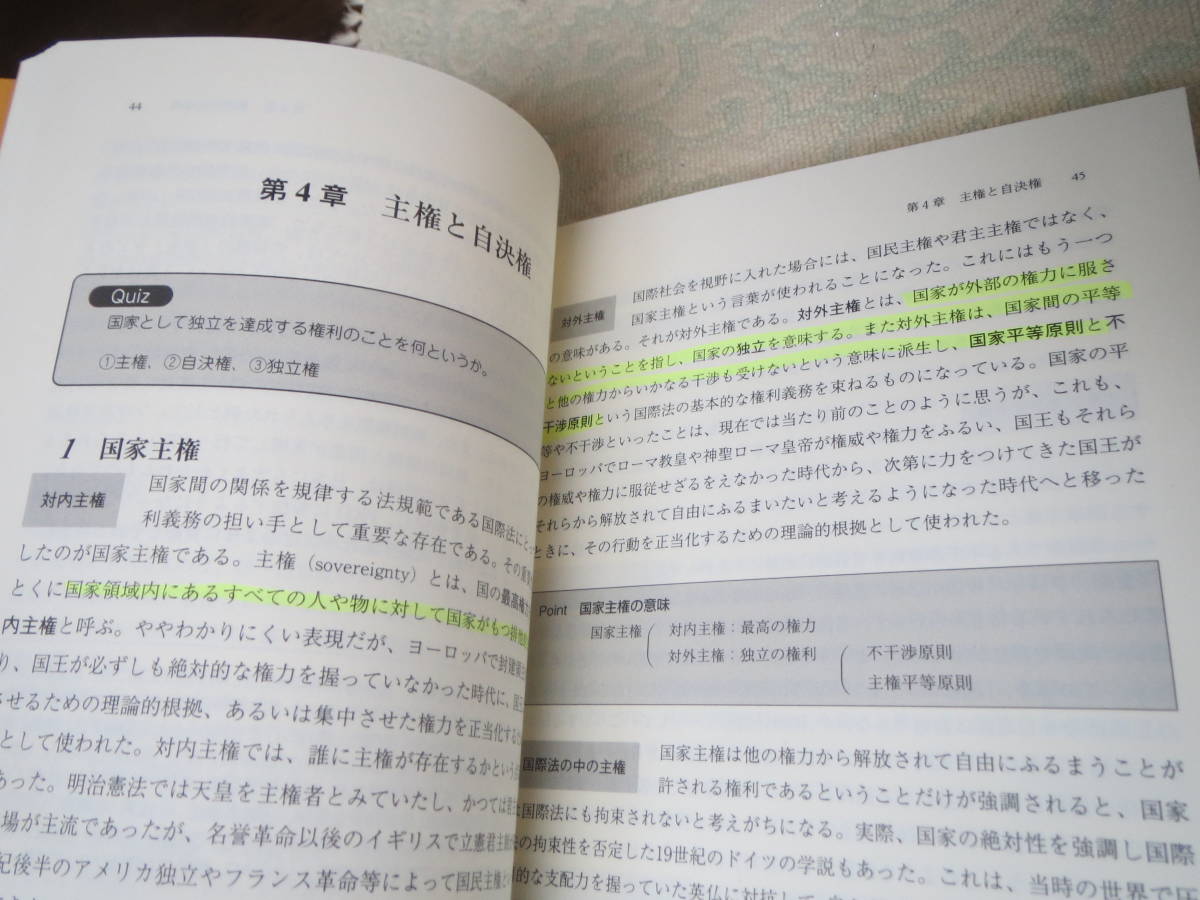 44
第4章 主権と自決権
Quiz
国家として独立を達成する権利のことを何というか。
①主権、②自決権、③独立権
1 国家主権
対内主権
国家間の関係を規律する法規範である国際法にと
利義務の担い手として重要な存在である。その
したのが国家主権である。主権（sovereignty）とは、国の最高権力
とくに国家領域内にあるすべての人や物に対して国家がもつ
内主権と呼ぶ。ややわかりにくい表現だが、ヨーロッパで封建
り、国王が必ずしも絶対的な権力を握っていなかった時代に、国王
させるための理論的根拠、あるいは集中させた権力を正当化する
として使われた。対内主権では、誰に主権が存在するかという
あった。明治憲法では天皇を主権者とみていたし、かつては
場が主流であったが、名誉革命以後のイギリスで立憲君主
紀後半のアメリカ独立やフランス革命等によって国民主権
第4章 主権と自決権 45
国際社会を視野に入れた場合には、国民主権や君主主権ではなく、
対外主権
国家主権という言葉が使われることになった。これにはもう一つ
の意味がある。それが対外主権である。対外主権とは、国家が外部の権力に服さ
ないということを指し、国家の独立を意味する。また対外主権は、国家間の平等
と他の権力からいかなる干渉も受けないという意味に派生し、国家平等原則と不
干渉原則という国際法の基本的な権利義務を束ねるものになっている。国家の平
等や不干渉といったことは、現在では当たり前のことのように思うが、これも、
ヨーロッパでローマ教皇や神聖ローマ皇帝が権威や権力をふるい、国王もそれら
の権威や権力に服従せざるをえなかった時代から、次第に力をつけてきた国王が
それらから解放されて自由にふるまいたいと考えるようになった時代へと移った
ときに、その行動を正当化するための理論的根拠として使われた。
Point 国家主権の意味
国家主権
対内主権：最高の権力
対外主権：独立の権利
不干渉原則
主権平等原則
国際法の中の主権
国家主権は他の権力から解放されて自由にふるまうことが
許される権利であるということだけが強調されると、国家
は国際法にも拘束されないと考えがちになる。実際、国家の絶対性を強調し国際
の拘束性を否定した19世紀のドイツの学説もあった。これは、当時の世界で圧
的な支配力を握っていた英仏に対抗して